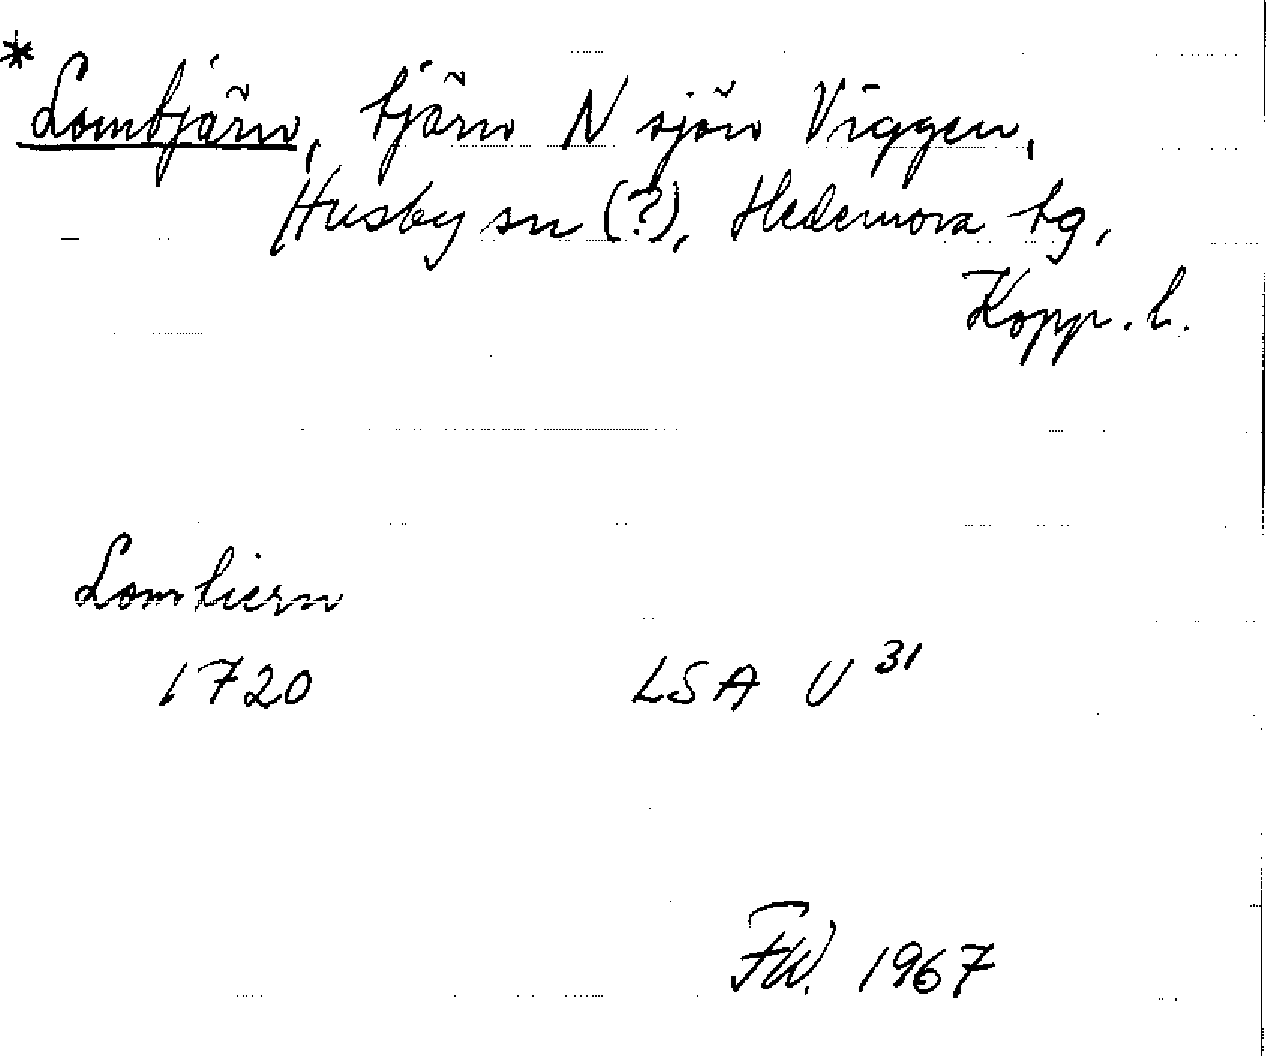 *Lomtjärn, tjärn N sjön Viggen,
Husby sn (?), Hedemora tg,
Kopp. l.
Lomtiern
1720 LSA U 31
FW. 1967